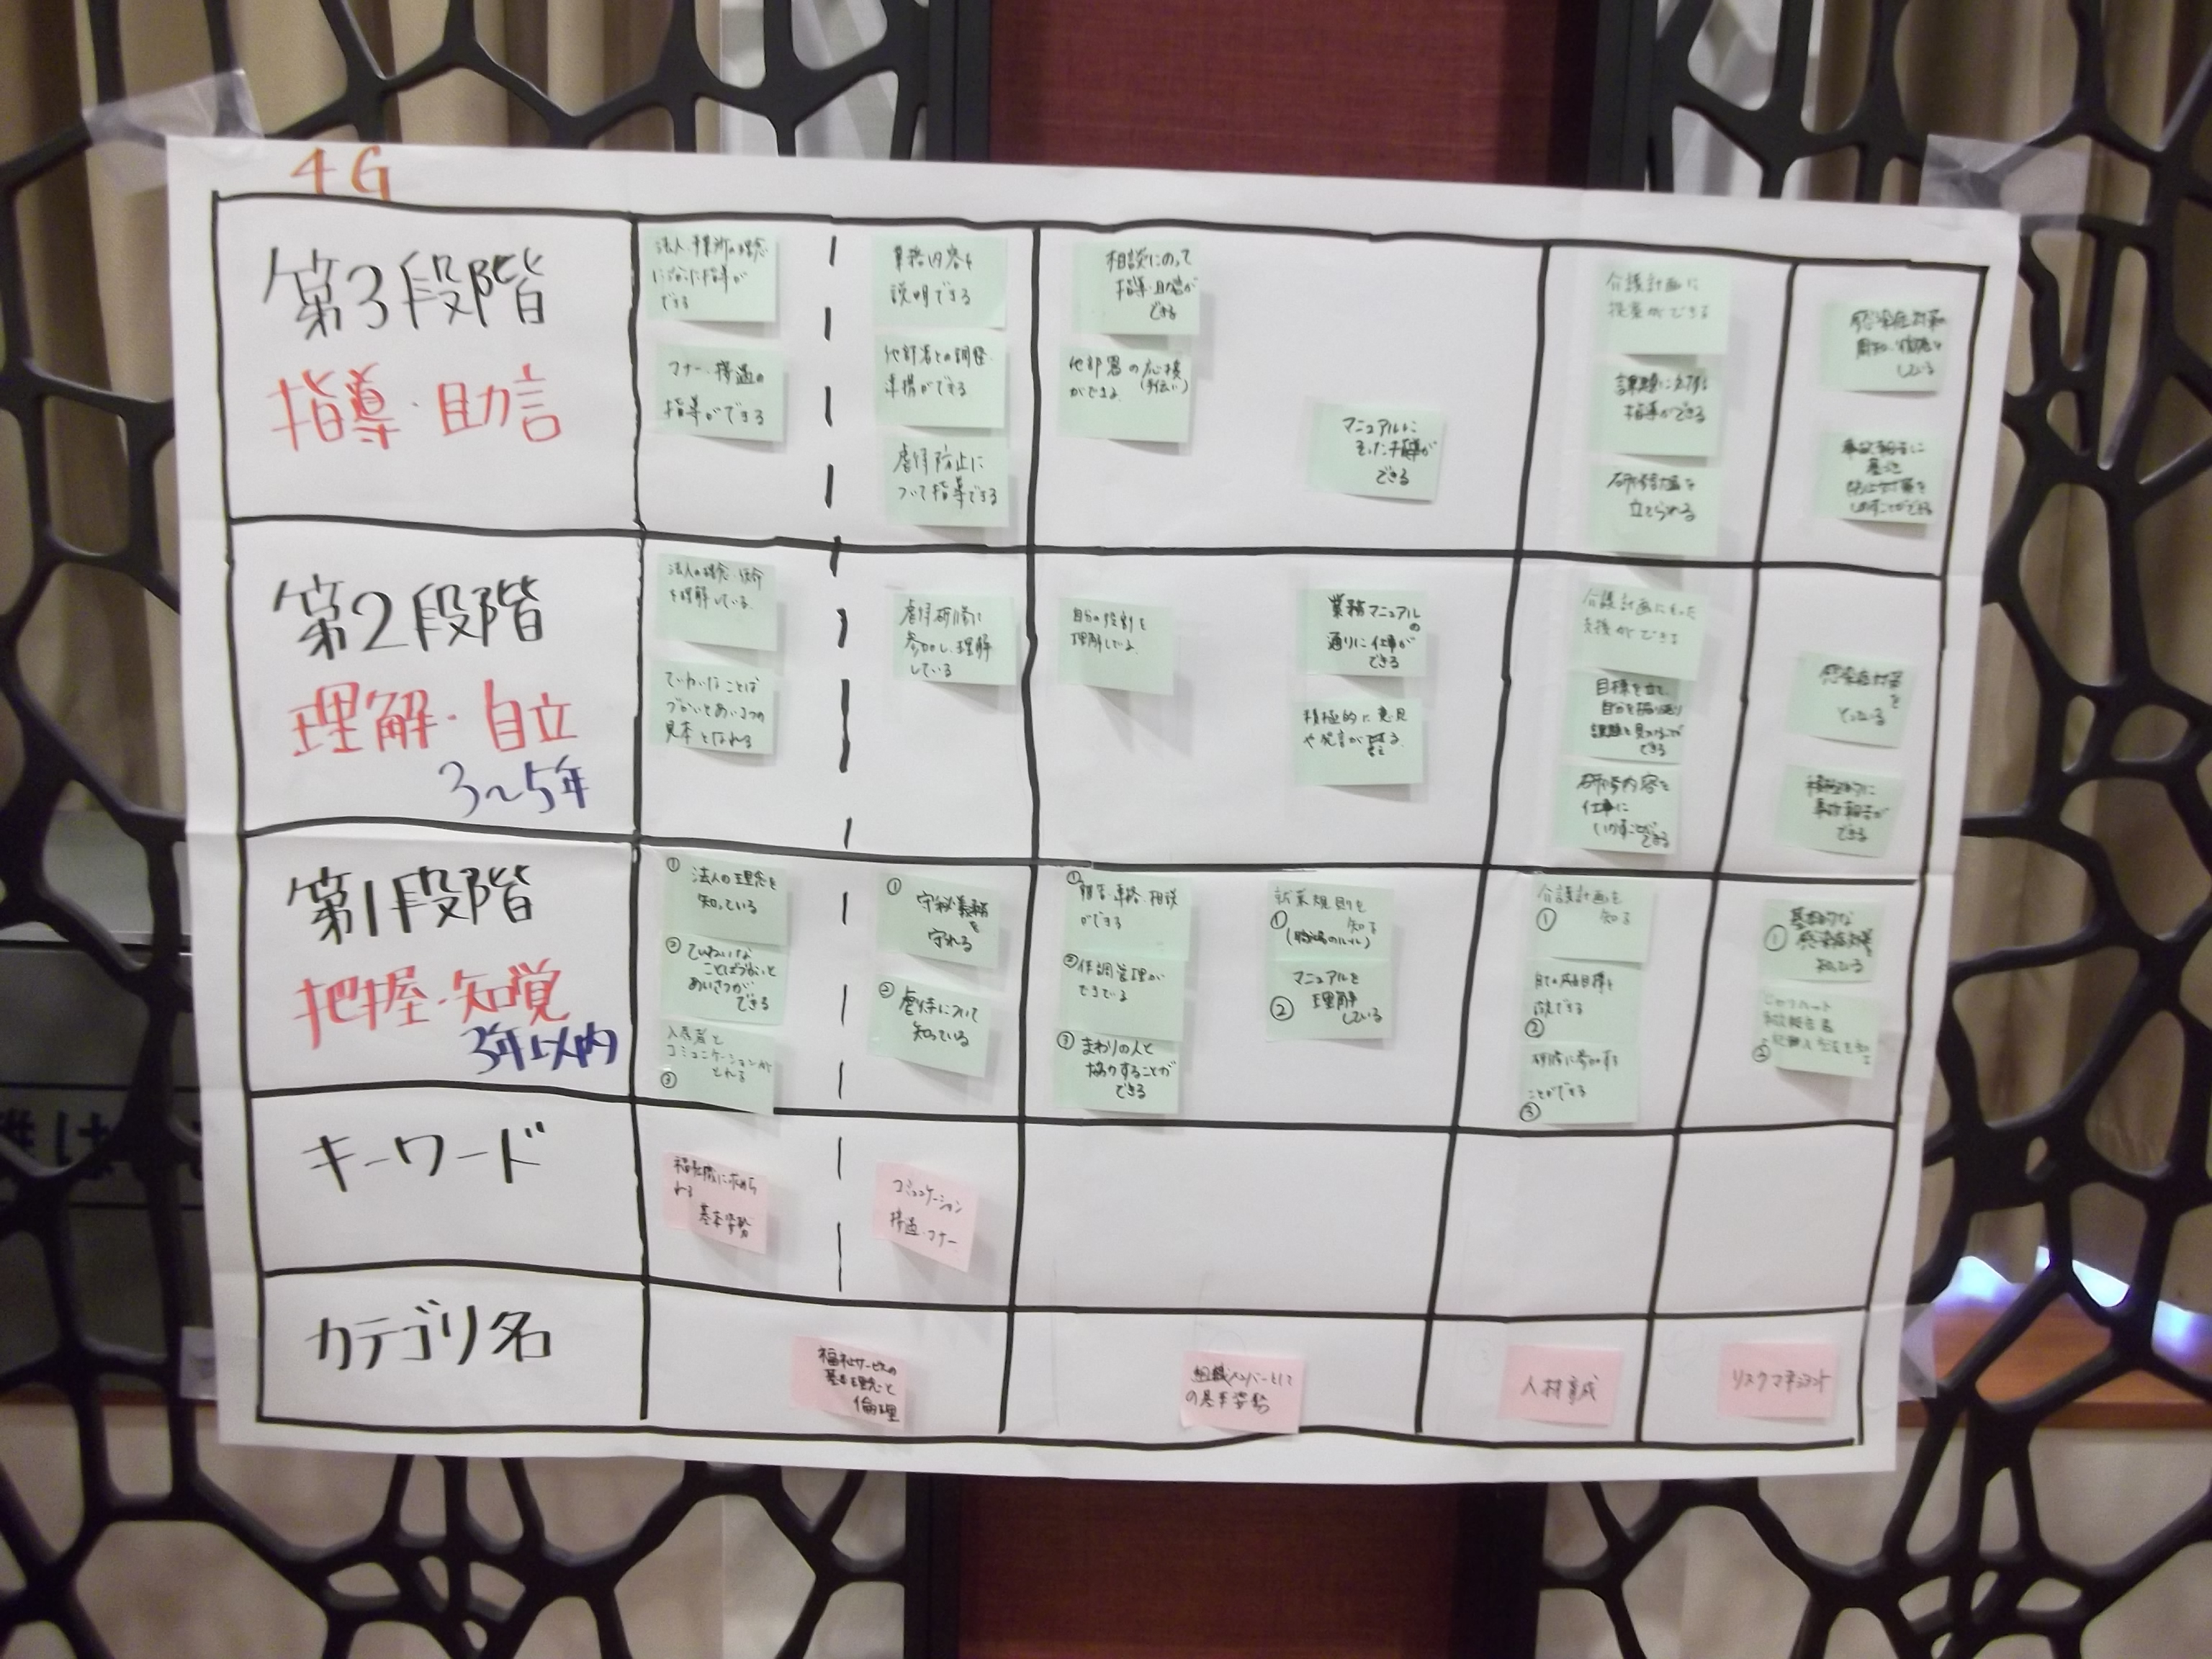 4G
第3段階
指導・助言
法人・事業所の理念
に沿った指導が
できる
マナー・接遇の
指導ができる
業務内容を
説明できる
他部署との調整・
連携ができる
虐待防止に
ついて指導できる
相談にのって
指導・助言が
できる
他部署の応援
(手伝い)
ができる
マニュアルに
そった指導が
できる
介護計画に
提案ができる
課題に対する
指導ができる
研修計画を
立てられる
感染症対策の
している
事故報告に
基づき
防止対策を
しめすことができる
第2段階
理解・自立
3〜5年
法人の理念・使命
を理解している
ていねいなことば
づかいとあいさつの
見本となれる
虐待研修に
参加し、理解
している
自分の役割を
理解している
業務マニュアル
の
通りに仕事が
できる
積極的に意見
や発言が
介護計画にそった
支援ができる
目標を立て、
自分を振り返り
課題を見つけることが
できる
研修内容を
仕事に
いかすことができる
感染症対策
を
とっている
積極的に
事故報告が
できる
第1段階
把握・知覚
3年以内
① 法人の理念を
知っている
② ていねいな
ことばづかいと
あいさつが
できる
入居者と
コミュニケーションが
とれる
③
① 守秘義務
を
守れる
② 虐待について
知っている
① 報告・連絡・相談
ができる
② 体調管理が
できている
③ まわりの人と
協力することが
できる
就業規則を
① 知る
(職場のルール)
マニュアルを
② 理解
している
介護計画を
① 知る
②
研修に参加する
ことができる
③
基本的な
① 感染症対策
知っている
ヒヤリハット
事故報告書
②
キーワード
福祉職に求めら
れる
基本姿勢
コミュニケーション
接遇・マナー
カテゴリ名
福祉サービスの
基本理念と
倫理
組織メンバーとして
の基本姿勢
人材育成
リスクマネジメント